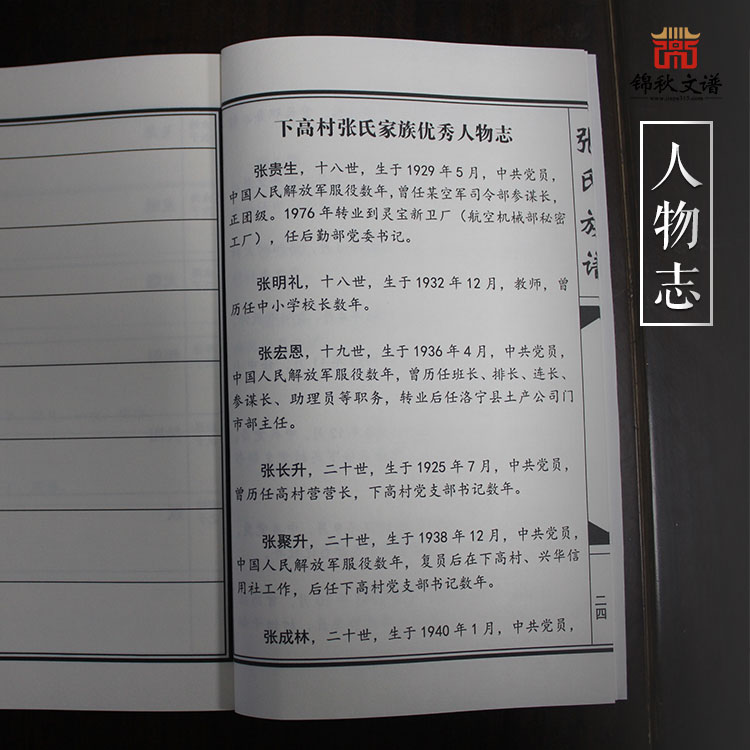 锦秋文谱
人物志
下高村张氏家族优秀人物志
张贵生，十八世，生于1929年5月，中共党员，
中国人民解放军服役数年，曾任某空军司令部参谋长，
正团级。1976年转业到灵宝新卫厂（航空机械部秘密
工厂），任后勤部党委书记。
张明礼，十八世，生于1932年12月，教师，曾
历任中小学校长数年。
张宏恩，十九世，生于1936年4月，中共党员，
中国人民解放军服役数年，曾历任班长、排长、连长、
参谋长、助理员等职务，转业后任洛宁县土产公司门
市部主任。
张长升，二十世，生于1925年7月，中共党员，
曾历任高村营营长，下高村党支部书记数年。
张聚升，二十世，生于1938年12月，中共党员，
中国人民解放军服役数年，复员后在下高村、兴华信
用社工作，后任下高村党支部书记数年。
张成林，二十世，生于1940年1月，中共党员，
张氏族谱
二四